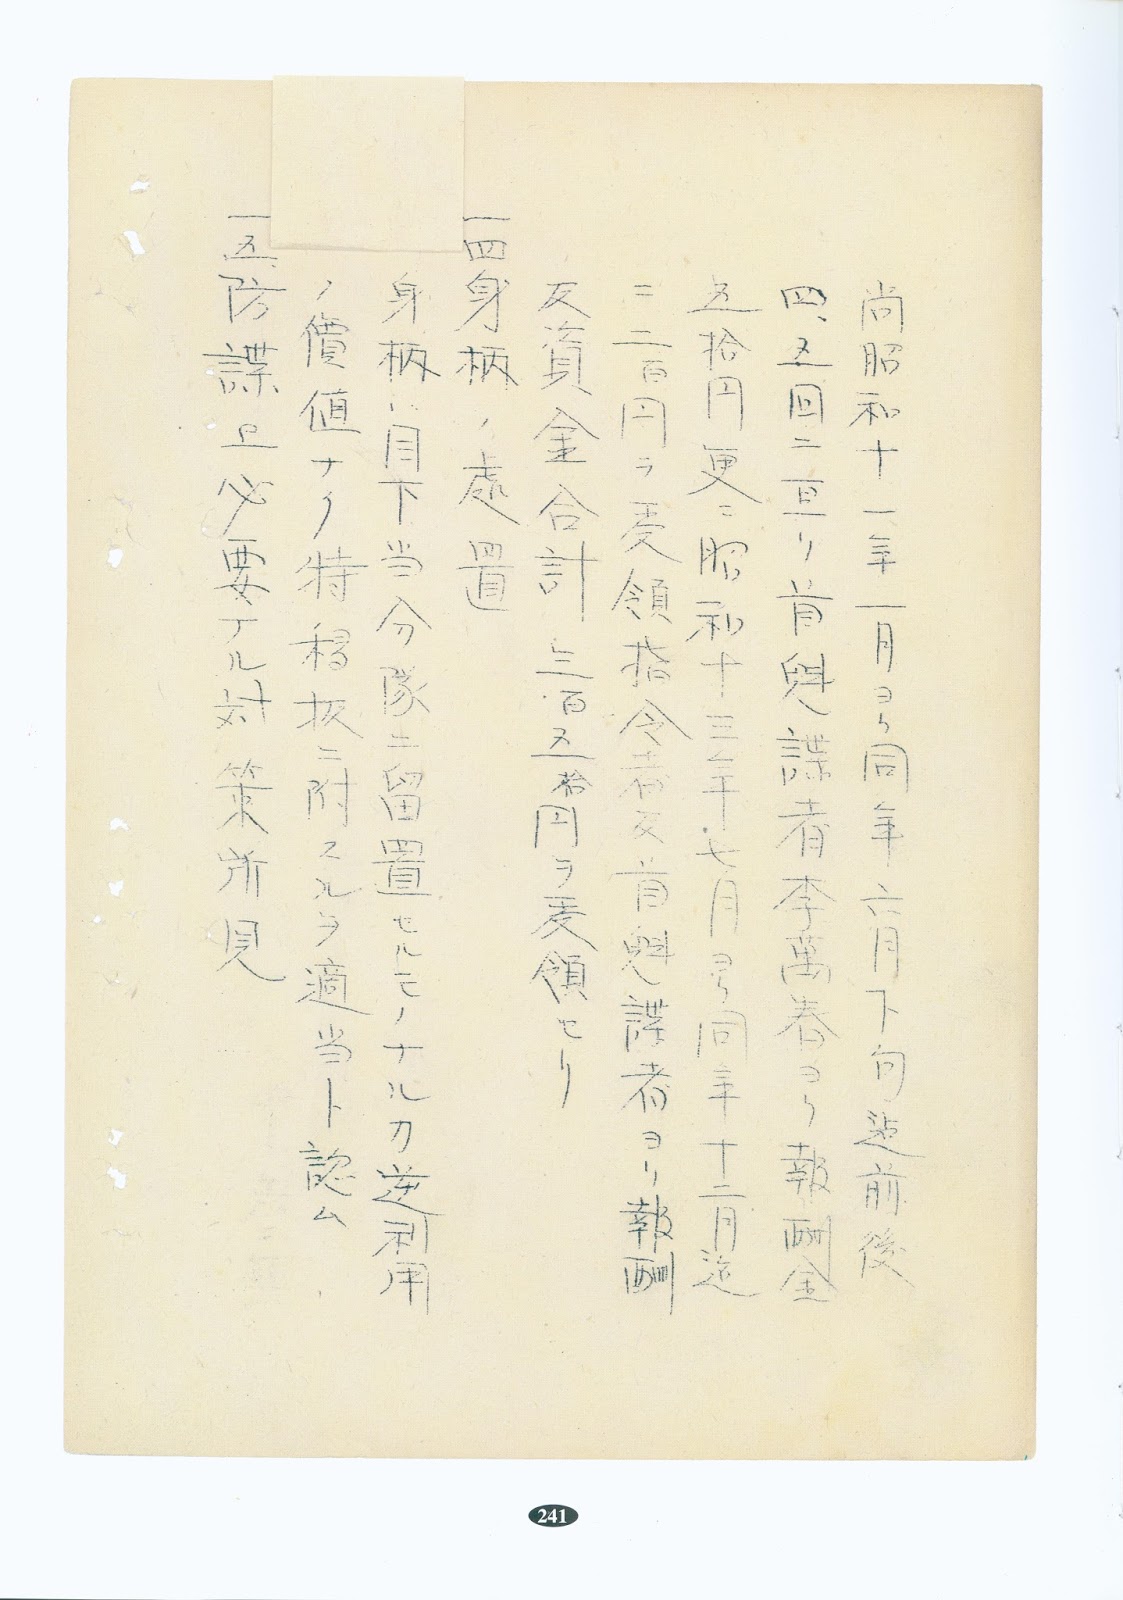 尚昭和十一年一月ヨリ同年六月下旬迄前後
四、五回ニ亘リ首魁諜者李萬春ヨリ報酬金
五拾円更ニ昭和十三年七月ヨリ同年十二月迄
ニ二百円ヲ受領指令者及首魁諜者ヨリ報酬
及資金合計三百五拾円ヲ受領セリ
一四身柄ノ處置
身柄ハ目下当分隊ニ留置セルモノナルカ逆利用
ノ價値ナク特移扱ニ附スルヲ適当ト認ム
一五、防諜上必要ナル対策所見
241